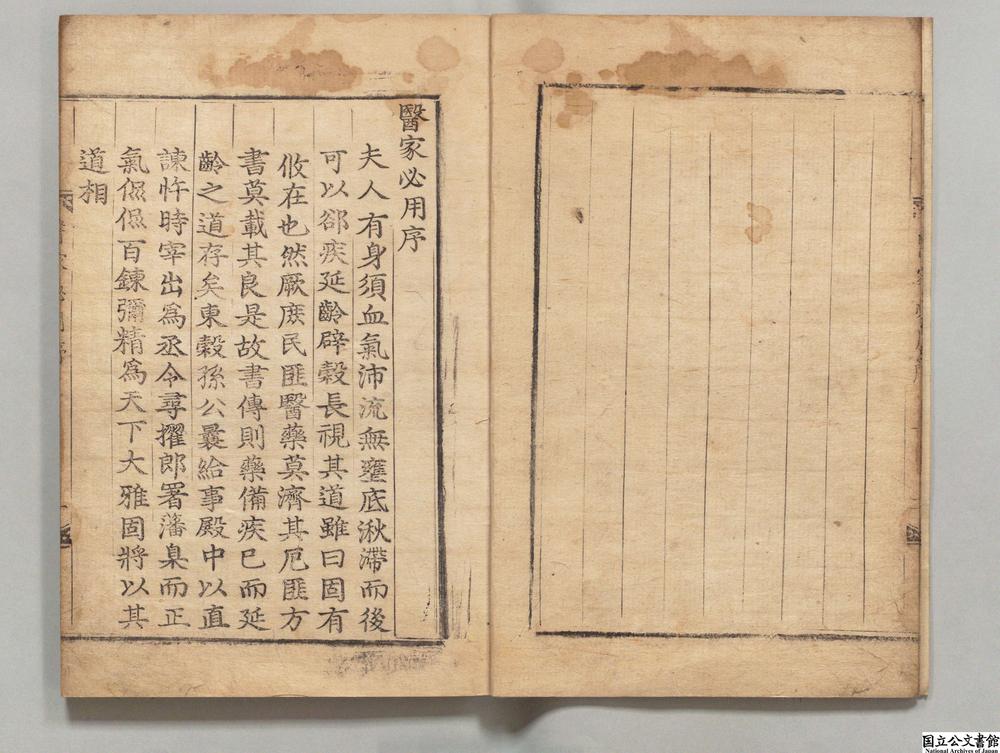 醫家必用序
夫人有身須血氣沛流無壅底湫滯而後
可以卻疾延齡辟穀長視其道雖曰固有
攸在也然厥庶民匪醫藥莫濟其厄匪方
書莫載其良是故書傳則藥備疾已而延
齡之道存矣東穀孫公曩給事殿中以直
諫忤時宰出爲丞令尋擢郎署藩臬而正
氣侃侃百鍊彌精爲天下大雅固將以其
道相
国立公文書館
National Archives of Japan